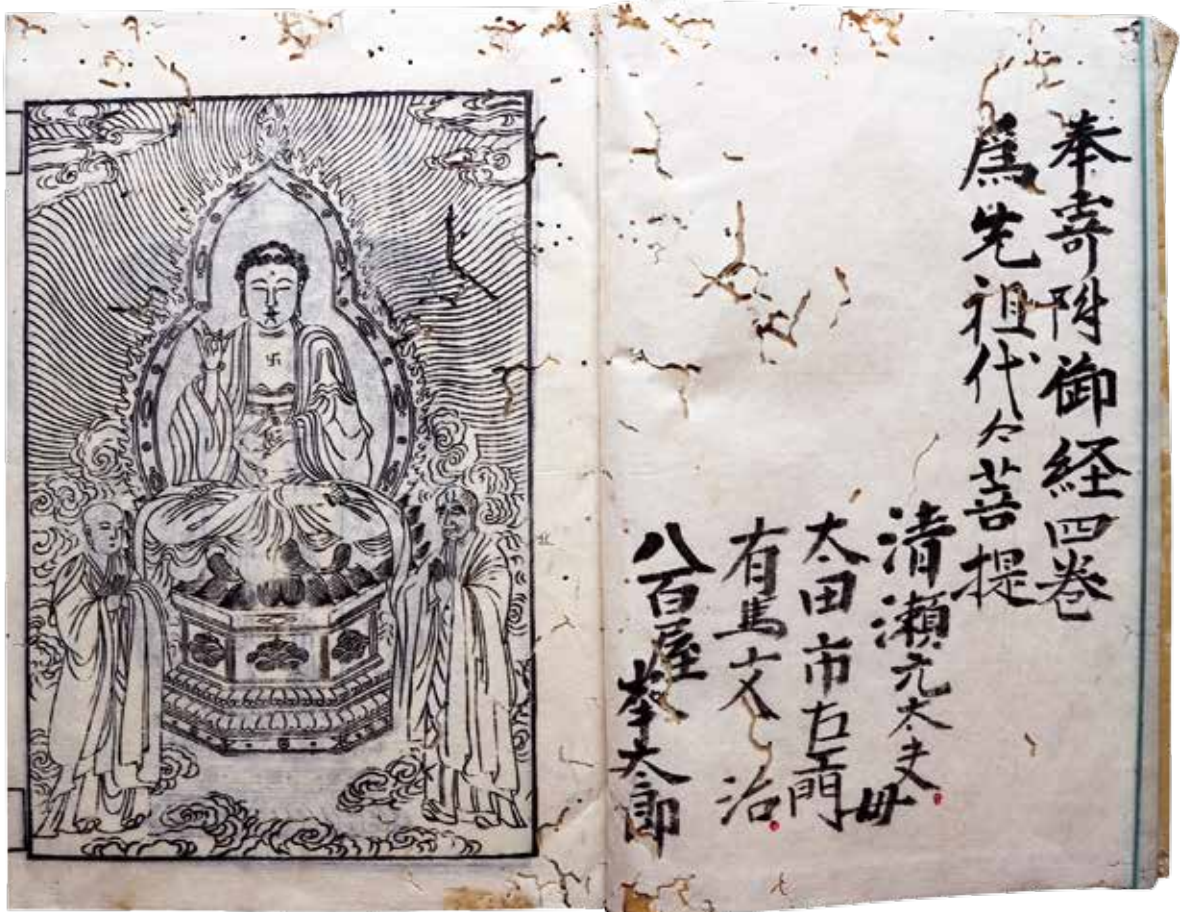 奉寄附御経四巻
為先祖代々菩提
清瀬元太夫母
太田市右エ門
有馬文治
八百屋峯太郎
卍